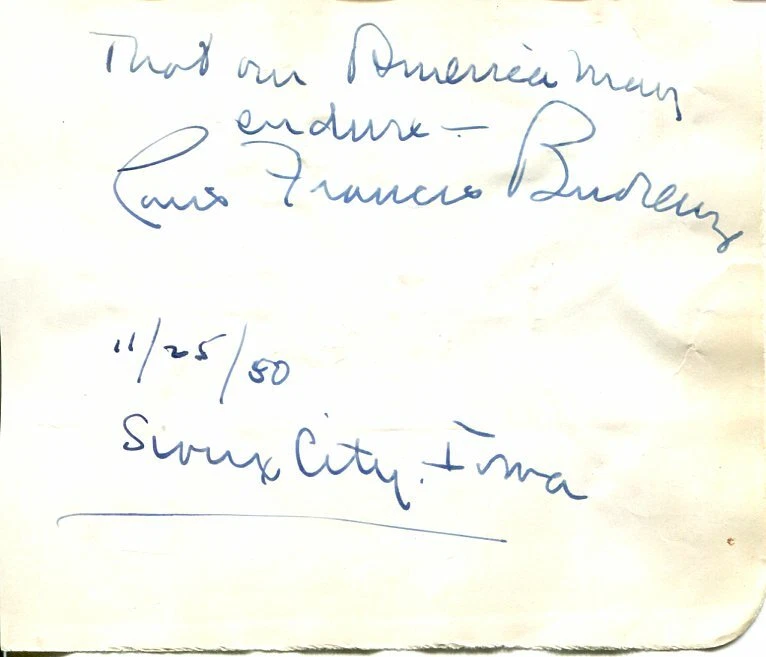 That our America may
endure —
Louis Francis Budenz
11/25/50
Sioux City, Iowa